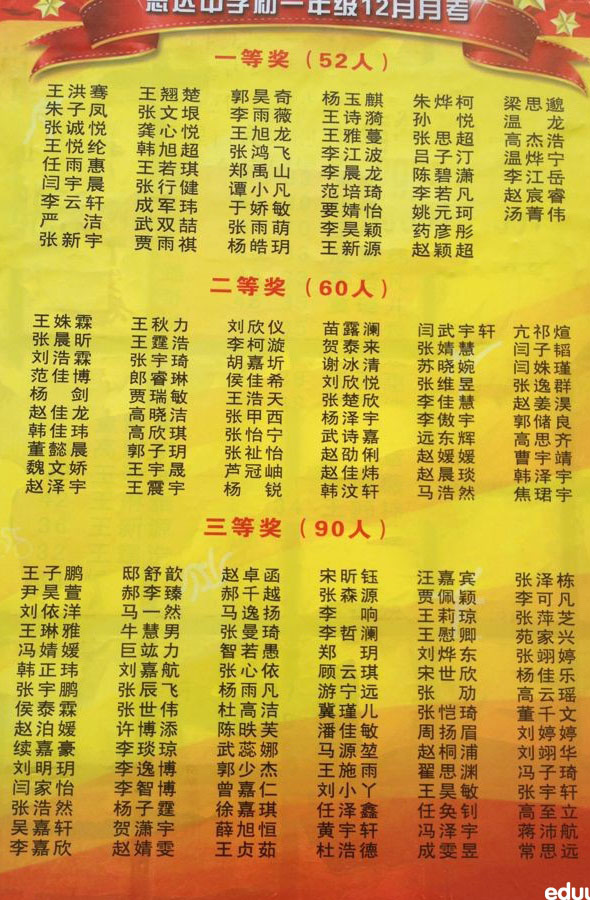 志达中学初一年级12月月考
一等奖（52人）
王洪骞 王翘楚 郭昊奇 杨玉麒 朱烨柯 梁思邈
朱子凤 张文垠 李雨薇 王诗漪 孙悦 温龙
张诚悦 龚心悦 王旭龙 王雅蔓 张思超 高杰浩
王悦纶 韩旭超 张鸿飞 李江波 吕子汀 温烨宁
任雨惠 王若琪 郑禹山 李晨龙 陈碧潇 李江岳
闫宇晨 张行健 谭小凡 范培琦 李若凡 赵宸睿
李云轩 成军玮 于娇敏 要婧怡 姚元珂 汤菁伟
严洁 武双喆 张雨萌 李昊颖 药彦彤
张新宇 贾雨祺 杨皓玥 王新源 赵颖超
二等奖（60人）
王姝霖 王秋力 刘欣仪 苗露澜 闫武宇轩 亢祁煊
张晨昕 王霆浩 李柯漩 贺泰来 张婧慧 闫子韬
刘浩霖 张宇琦 胡嘉圻 谢冰清 苏晓婉 闫姝瑾
范佳博 郎睿琳 侯佳希 刘欣悦 张维昱 张逸群
杨剑 贾瑞敏 王浩天 张楚欣 李佳慧 赵姜淏
赵佳龙 高晓洁 张甲西 杨泽宇 李傲宇 郭储良
韩佳玮 高欣琪 张怡宁 武诗嘉 远东辉 高思齐
董懿晨 郭子玥 张怡怡 赵劭俐 赵媛媛 曹宇靖
魏文娇 王宇晟 芦冠岫 赵佳炜 赵晨琰 韩泽宇
赵泽宇 王震宇 杨锐 韩汶轩 马浩然 焦珺宇
三等奖（90人）
王子鹏 邸舒歆 赵卓函 宋昕钰 汪嘉宾 张泽栋
尹昊萱 郝李臻 郝千越 张森源 贾佩颖 李可凡
刘依洋 马一然 马逸扬 李响 王莉琼 张萍芝
王琳雅 牛慧男 张曼琦 李哲澜 王慰卿 苑家兴
冯婧媛 巨竑力 智若愚 郑玥 刘烨东 张翊婷
韩正玮 刘嘉航 张心依 顾云琪 宋世欣 杨佳乐
张宇鹏 张辰飞 杨雨凡 游宁远 张劢 高云瑶
侯泰霖 张世伟 杜高洁 冀瑾儿 张恺琦 董千文
赵泊媛 许博添 陈昳芙 潘佳敏 周扬眉 刘婷婷
续嘉豪 李琰琼 武蕊娜 马源堃 赵桐浦 刘翊华
刘明玥 李逸博 郭少杰 王施雨 翟思渊 冯子琦
闫家怡 李智博 曾嘉仁 刘小丫 王昊敏 张宇轩
张浩然 杨子霆 徐嘉琪 任泽鑫 任奂钊 高至立
吴嘉轩 贺潇宇 薛旭恒 黄宇轩 冯泽宇 蒋沛航
李嘉欣 赵婧雯 王贞茹 杜浩德 成雯昱 常思远